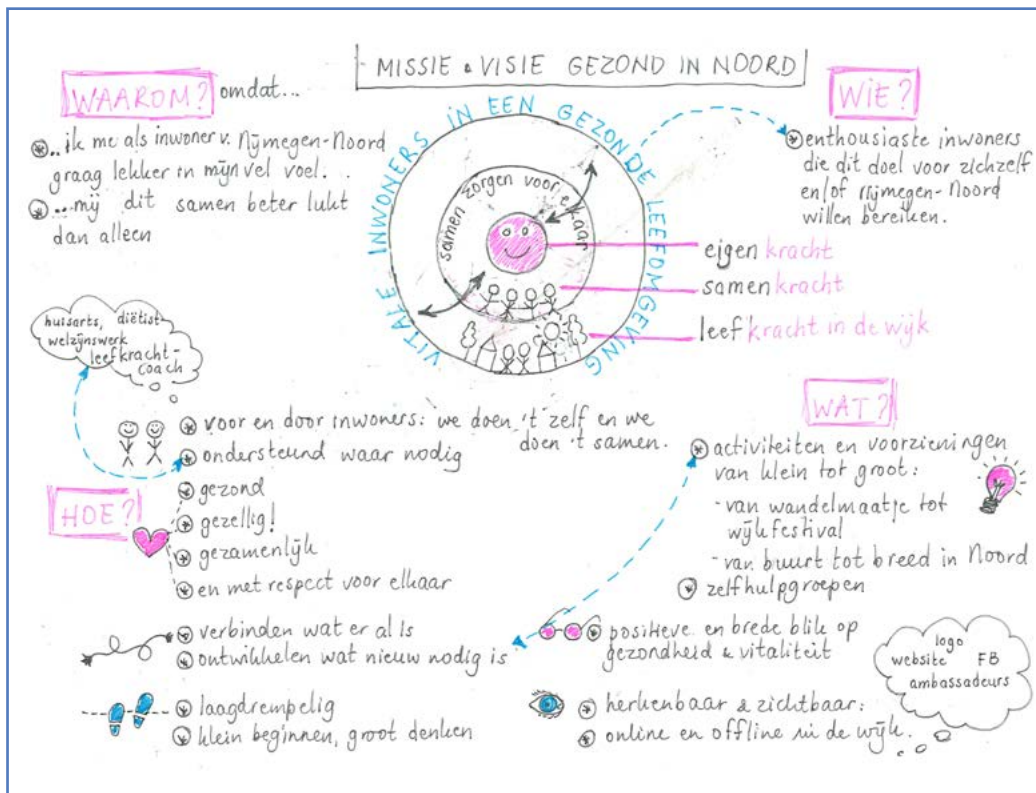 MISSIE & VISIE GEZOND IN NOORD
WAAROM? omdat...
...ik me als inwoner v. Nijmegen-Noord
graag lekker in mijn vel voel...
...mij dit samen beter lukt
dan alleen
VITALE INWONERS IN EEN GEZONDE LEEFOMGEVING
samen zorgen voor elkaar
eigen kracht
samenkracht
leefkracht in de wijk
WIE?
enthousiaste inwoners
die dit doel voor zichzelf
en/of Nijmegen-Noord
willen bereiken.
huisarts, diëtist
welzijnswerk
leefkracht-
coach
HOE?
voor en door inwoners: we doen 't zelf en we
doen 't samen.
ondersteund waar nodig
gezond
gezellig!
gezamenlijk
en met respect voor elkaar
verbinden wat er al is
ontwikkelen wat nieuw nodig is
laagdrempelig
klein beginnen, groot denken
WAT?
activiteiten en voorzieningen
van klein tot groot:
- van wandelmaatje tot
wijkfestival
- van buurt tot breed in Noord
zelfhulpgroepen
positieve en brede blik op
gezondheid & vitaliteit
herkenbaar & zichtbaar:
online en offline in de wijk.
logo
website FB
ambassadeurs